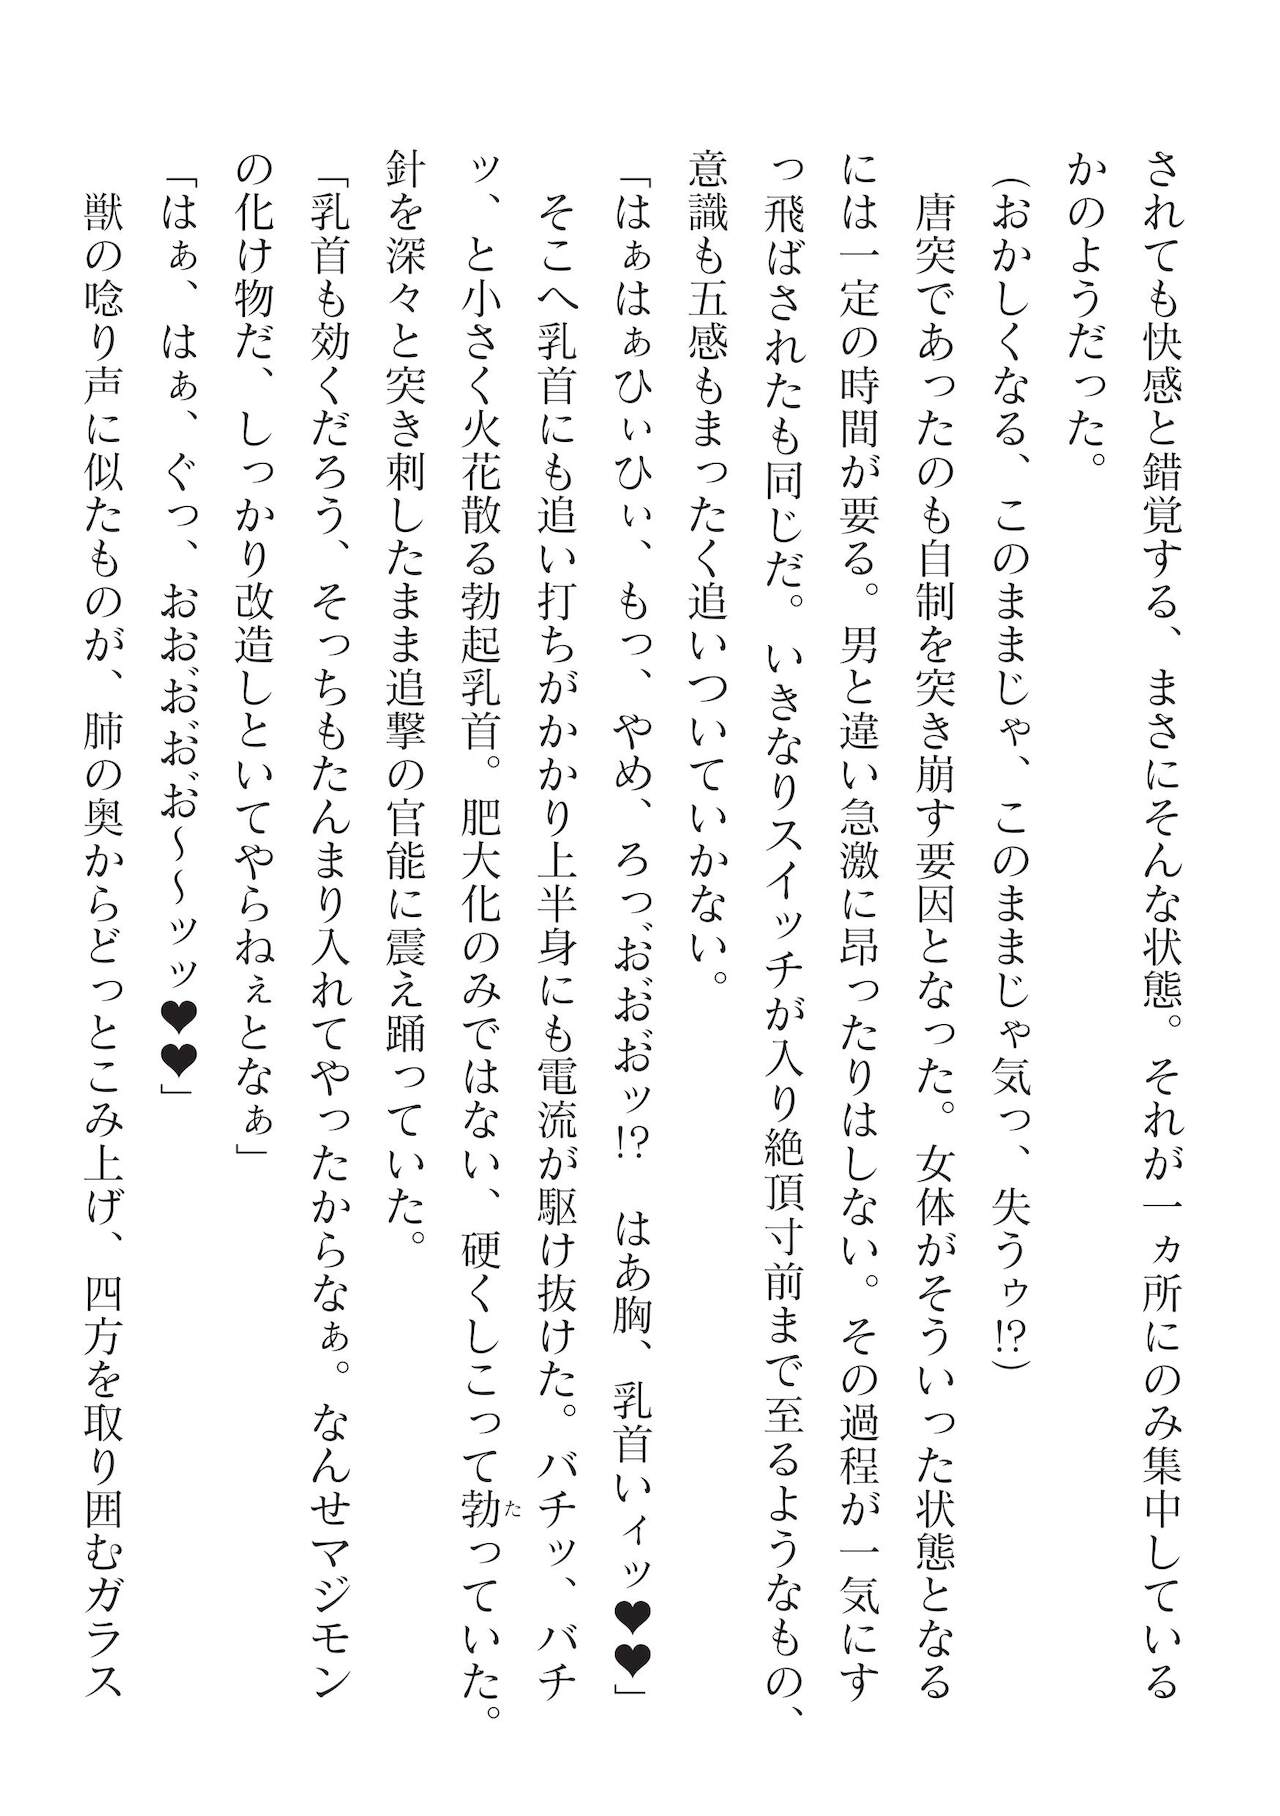 されても快感と錯覚する、まさにそんな状態。それが一ヵ所にのみ集中している
かのようだった。
（おかしくなる、このままじゃ、このままじゃ気っ、失うゥ!?）
　唐突であったのも自制を突き崩す要因となった。女体がそういった状態となる
には一定の時間が要る。男と違い急激に昂ったりはしない。その過程が一気にす
っ飛ばされたも同じだ。いきなりスイッチが入り絶頂寸前まで至るようなもの、
意識も五感もまったく追いついていかない。
「はぁはぁひぃひぃ、もっ、やめ、ろっお゛お゛お゛ッ!?　はあ胸、乳首いィッ♥♥」
　そこへ乳首にも追い打ちがかかり上半身にも電流が駆け抜けた。バチッ、バチ
ッ、と小さく火花散る勃起乳首。肥大化のみではない、硬くしこって勃っていた。
た
針を深々と突き刺したまま追撃の官能に震え踊っていた。
「乳首も効くだろう、そっちもたんまり入れてやったからなぁ。なんせマジモン
の化け物だ、しっかり改造しといてやらねぇとなぁ」
「はぁ、はぁ、ぐっ、おおお゛お゛お゛～～ッッ♥♥」
　獣の唸り声に似たものが、肺の奥からどっとこみ上げ、四方を取り囲むガラス